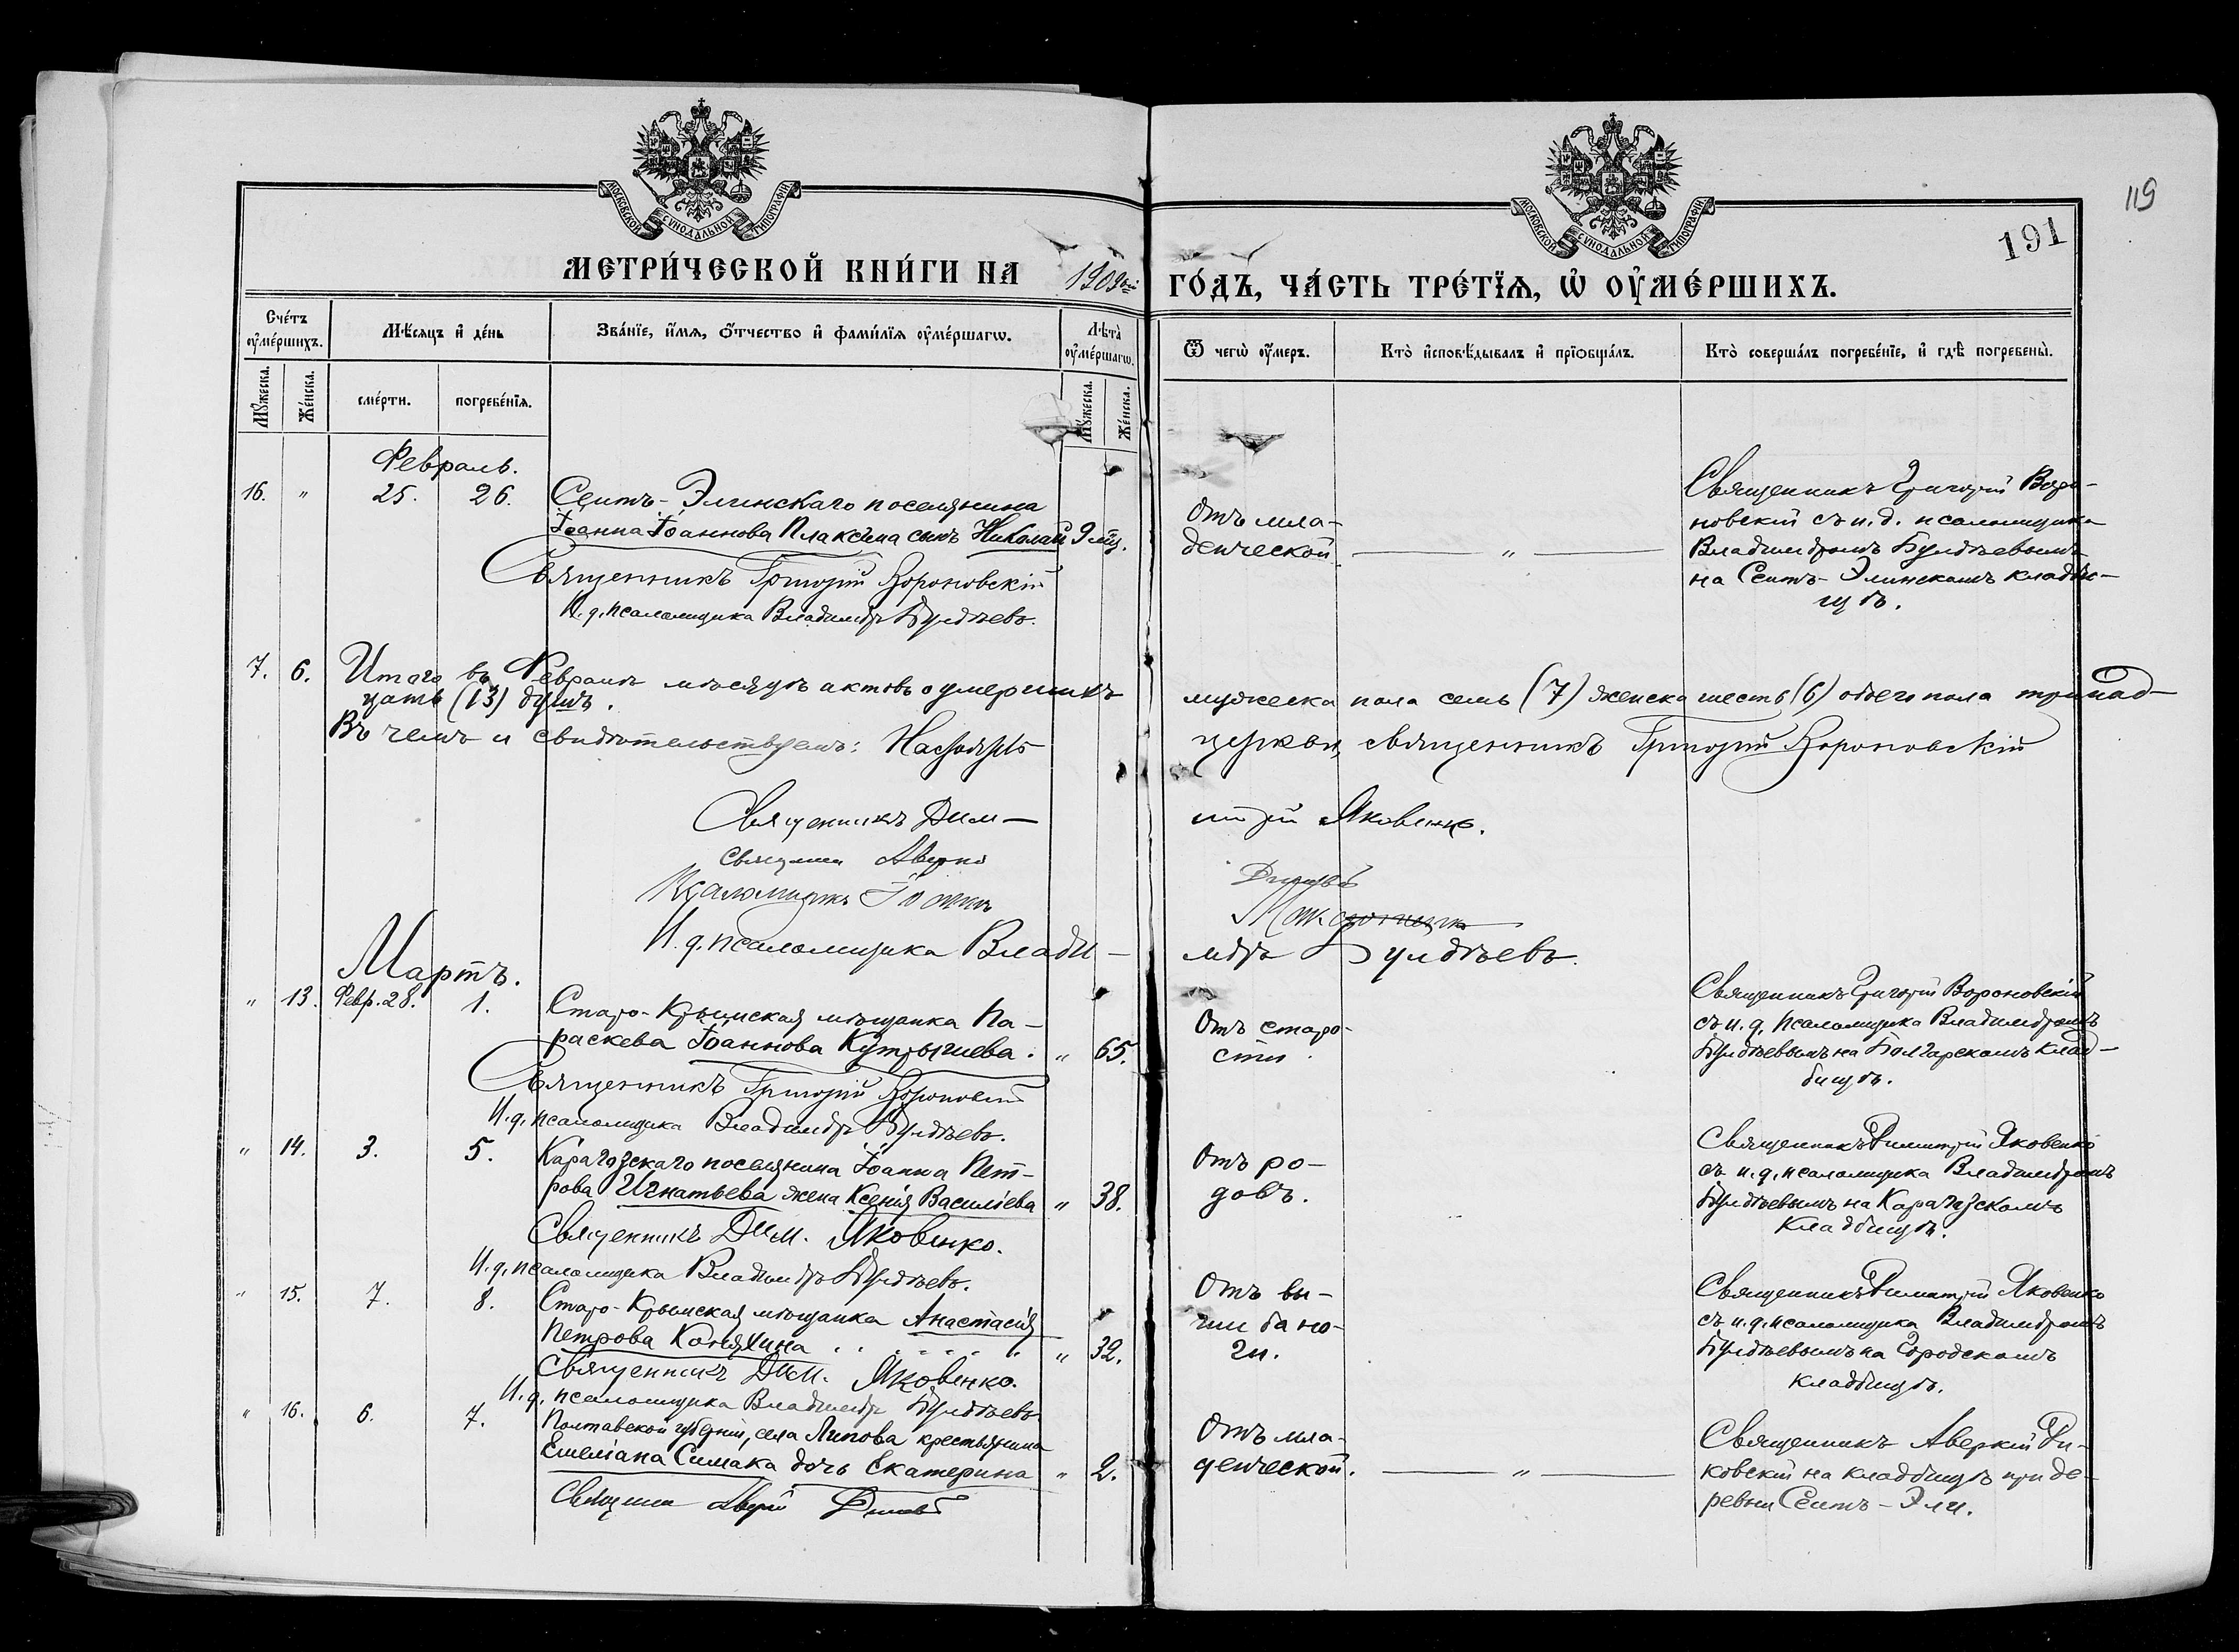 МОСКОВСКОЙ СѴНОДАЛЬНОЙ ТИПОГРАФІИ
МОСКОВСКОЙ СѴНОДАЛЬНОЙ ТИПОГРАФІИ
119
191
МЕТРИ́ЧЕСКОЙ КНИ́ГИ НА 1909 ГО́ДЪ, ЧА́СТЬ ТРЕ́ТЇѦ, Ѡ҆ ОУ҆МЕ́РШИХЪ.
Сче́тъ оу҆ме́ршихъ.
Мѣ́сяцъ и҆ де́нь
Зва́нїе, и҆́мѧ, ѻ҆́тчество и҆ фами́лїѧ оу҆ме́ршагѡ.
Лѣ́та̀ оу҆ме́ршагѡ.
Ѿ чегѡ̀ оу҆́меръ.
Кто̀ и҆сповѣ́дывалъ и҆ прїѻбща́лъ.
Кто̀ соверша́лъ погребе́нїе, и҆ гдѣ̀ погребены̀.
Мꙋ́жеска. Же́нска. сме́рти. погребе́нїѧ. Мꙋ́жеска. Же́нска.
Февраль.
16. " 25. 26. Сеитъ-Элинскаго поселянина
Іоанна Іоаннова Плаксина сынъ Николай 9 мѣс.
Священникъ Григорій Вороновскій
И. д. псаломщика Владиміръ Булдѣевъ.
Отъ мла-
денческой — " —
Священникъ Григорій Воро-
новскій съ и. д. псаломщика
Владиміромъ Булдѣевымъ
на Сеитъ-Элинскомъ кладби-
щѣ.
7. 6. Итого въ Февралѣ мѣсяцѣ актовъ о умершихъ мужеска пола семь (7) женска шесть (6) обоего пола тринад-
цать (13) душъ.
Въ чемъ и свидѣтельствуемъ: Настоятель церкви, священникъ Григорій Вороновскій
Священникъ Дим-
итрій Яковенко.
Аверкій
Псаломщикъ Іоаннъ
И. д. псаломщика Влади-
міръ Булдѣевъ.
Мартъ.
" 13. Февр. 28. 1. Старо-Крымская мѣщанка Па-
раскева Іоаннова Кутрычиева. " 65.
Священникъ Григорій Вороновскій
И. д. псаломщика Владиміръ Булдѣевъ.
Отъ старо-
сти.
Священникъ Григорій Вороновскій
съ и. д. псаломщика Владиміромъ
Булдѣевымъ на Болгарскомъ клад-
бищѣ.
" 14. 3. 5. Карагозскаго поселянина Іоанна Пет-
рова Игнатьева жена Ксенія Василіева " 38.
Священникъ Дим. Яковенко.
И. д. псаломщика Владиміръ Булдѣевъ.
Отъ ро-
довъ.
Священникъ Димитрій Яковенко
съ и. д. псаломщика Владиміромъ
Булдѣевымъ на Карагозскомъ
кладбищѣ.
" 15. 7. 8. Старо-Крымская мѣщанка Анастасія
Петрова Конякина . . . . . . " 32.
Священникъ Дим. Яковенко.
И. д. псаломщика Владиміръ Булдѣевъ
Отъ вы-
Священникъ Димитрій Яковенко
съ и. д. псаломщика Владиміромъ
Булдѣевымъ на Городскомъ
кладбищѣ.
" 16. 6. 7. Полтавской губерніи, села Липова крестьянина
Емеліана Симака дочь Екатерина " 2.
Отъ мла-
денческой. — " —
Священникъ Аверкій Ди-
ковскій на кладбищѣ при де-
ревни Сеитъ-Эли.